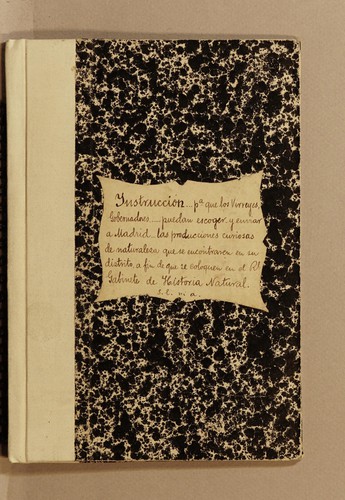 Instrucción__pª que los Virreyes,
Gobernadores__puedan escoger y enviar
a Madrid las producciones curiosas
de naturaleza que se encontraren en su
distrito, a fin de que se coloquen en el Rl
Gabinete de Historia Natural.
s. l. ni a.